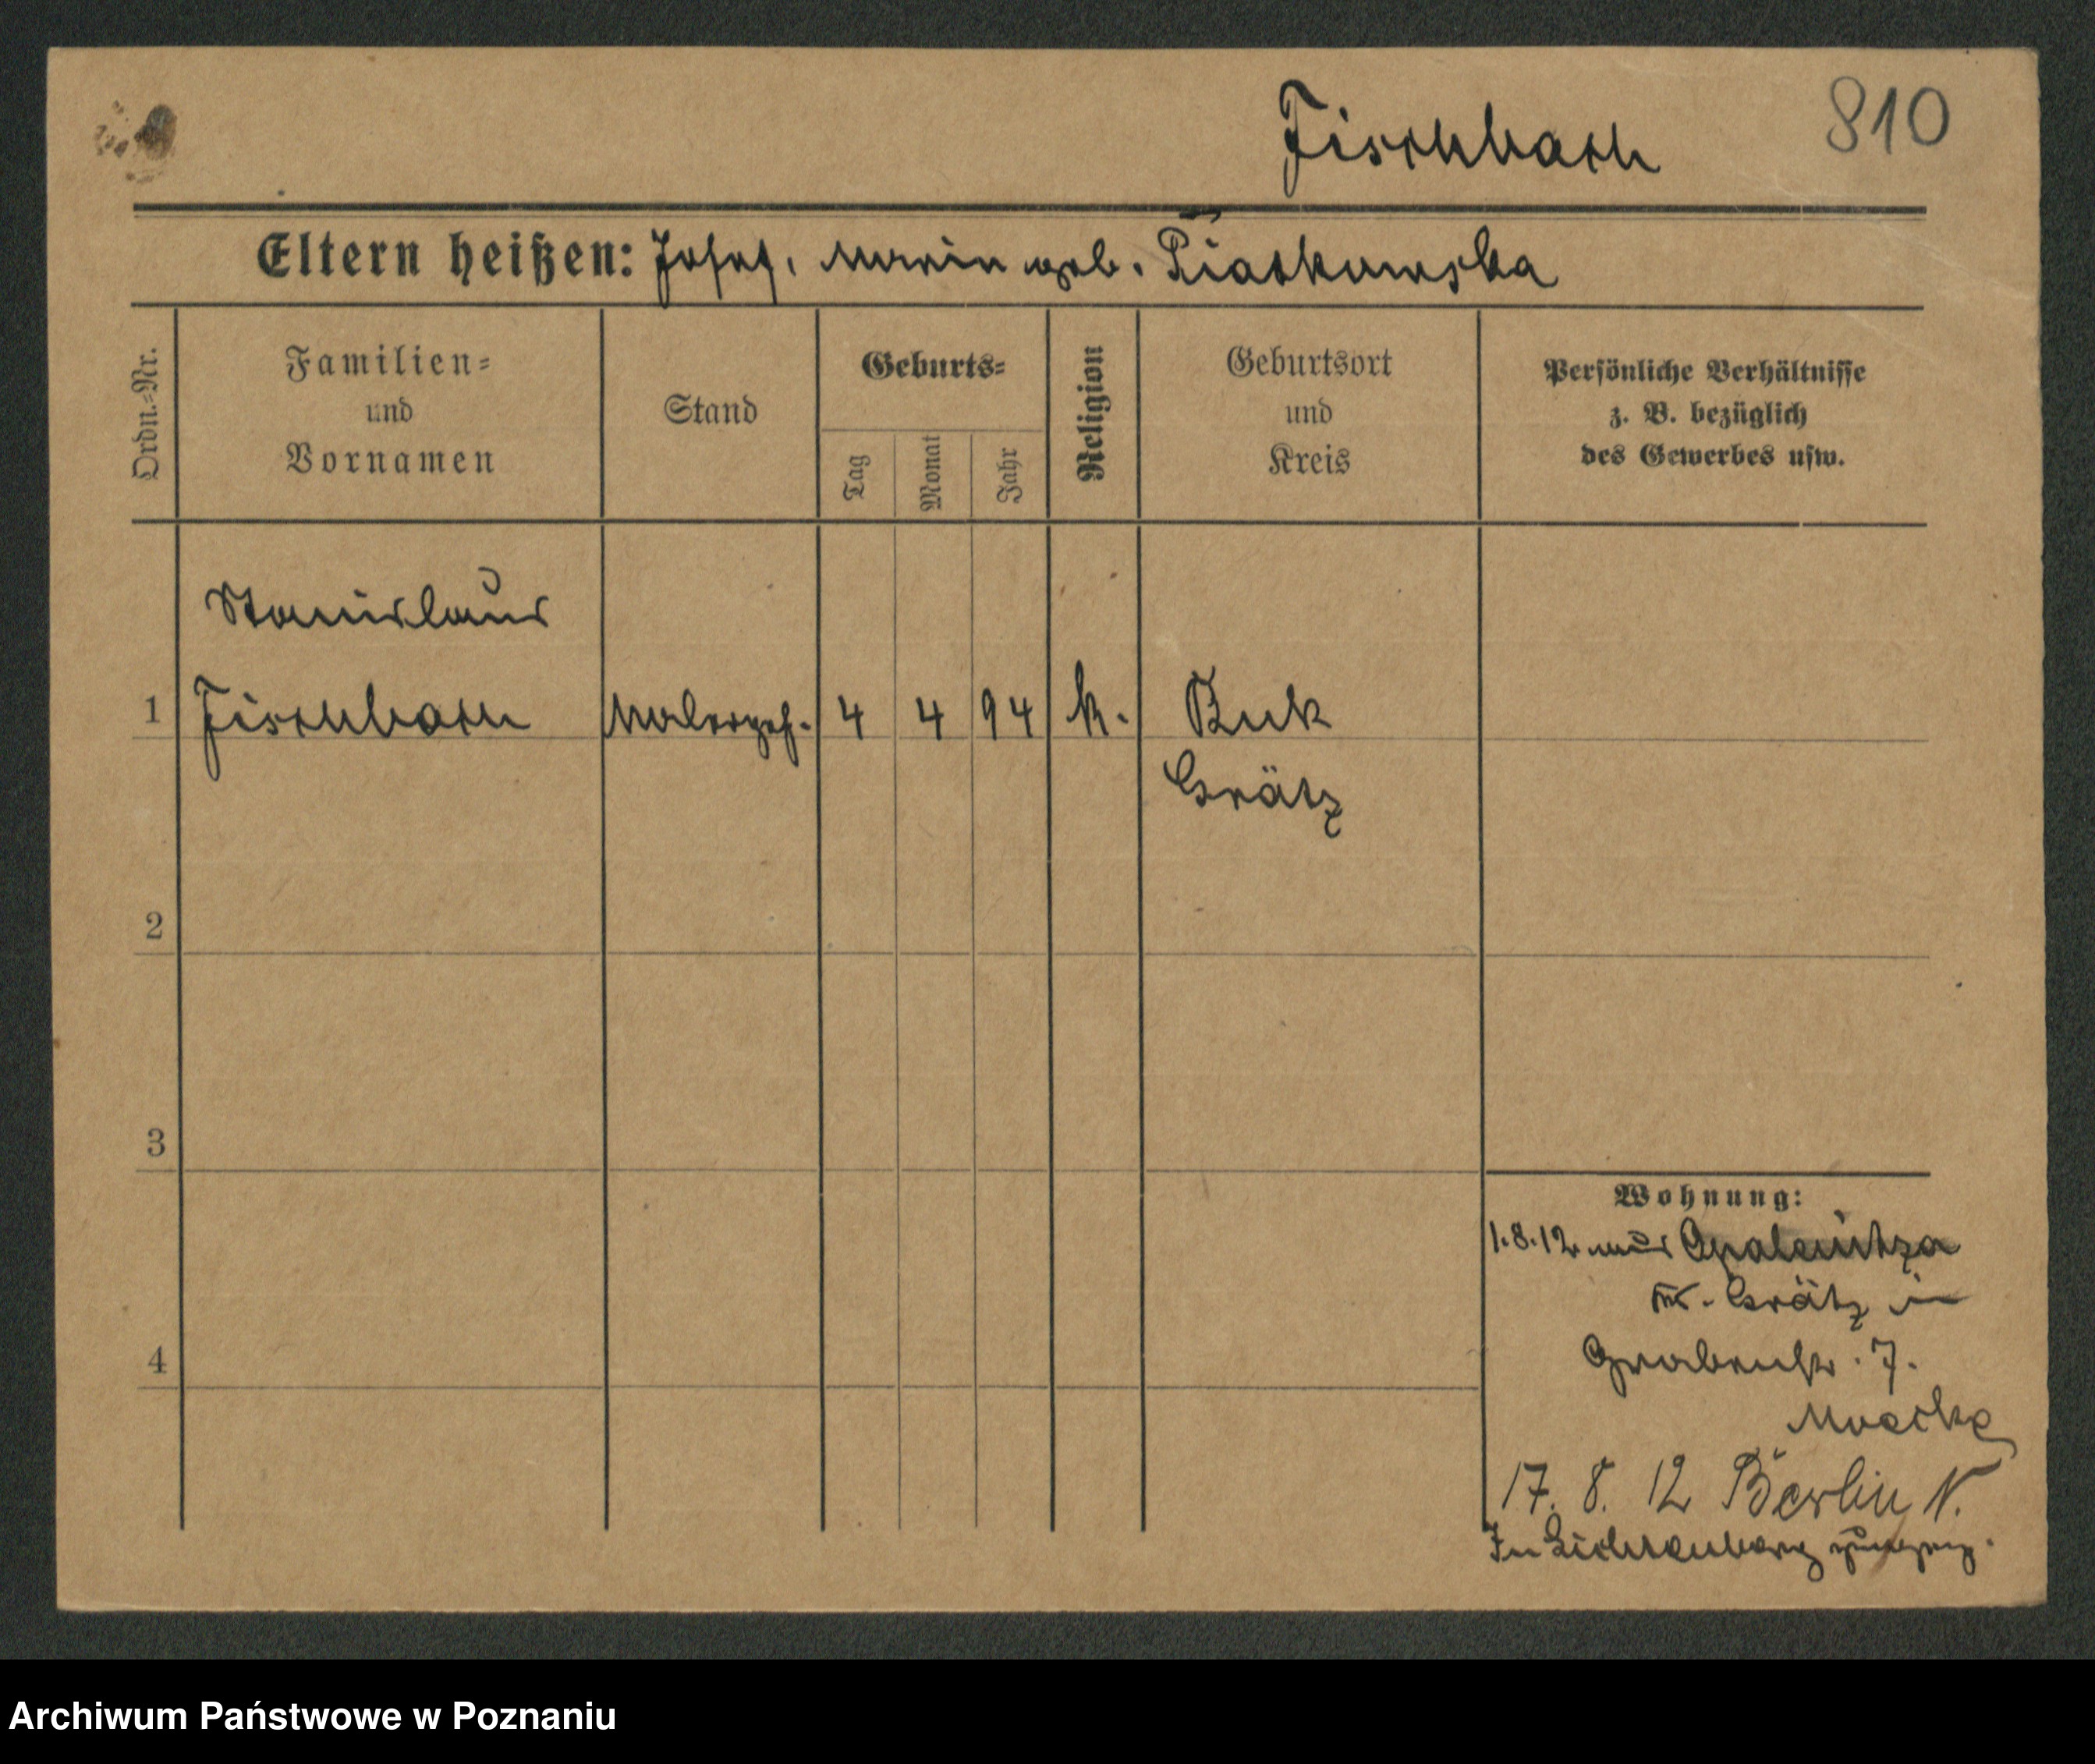 Fischbach 810
Eltern heißen: Josef, Marie geb. Piaskowska
Ordn.-Nr.
Familien-
und
Vornamen
Stand
Geburts-
Tag
Monat
Jahr
Religion
Geburtsort
und
Kreis
Persönliche Verhältnisse
z. B. bezüglich
des Gewerbes usw.
Stanislaus
1 Fischbach Malergeh. 4 4 94 k. Buk
Grätz
2
3
4
Wohnung:
1.8.12 aus Opalenitza
Kr. Grätz in
Grabenstr. 7.
17. 8. 12 Berlin N.
In Lichtenberg
Archiwum Państwowe w Poznaniu